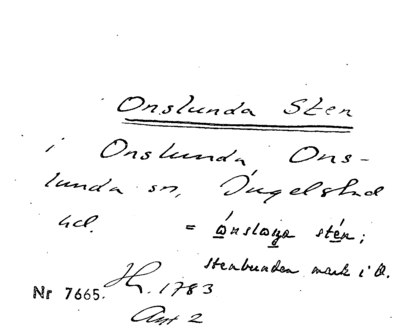 Onslunda Sten
i Onslunda, Ons-
lunda sn, Ingelstad
hd. = ónsloṇa stén;
stenbunden mark i O.
Hn. 1783
Nr 7665.
Ant 2